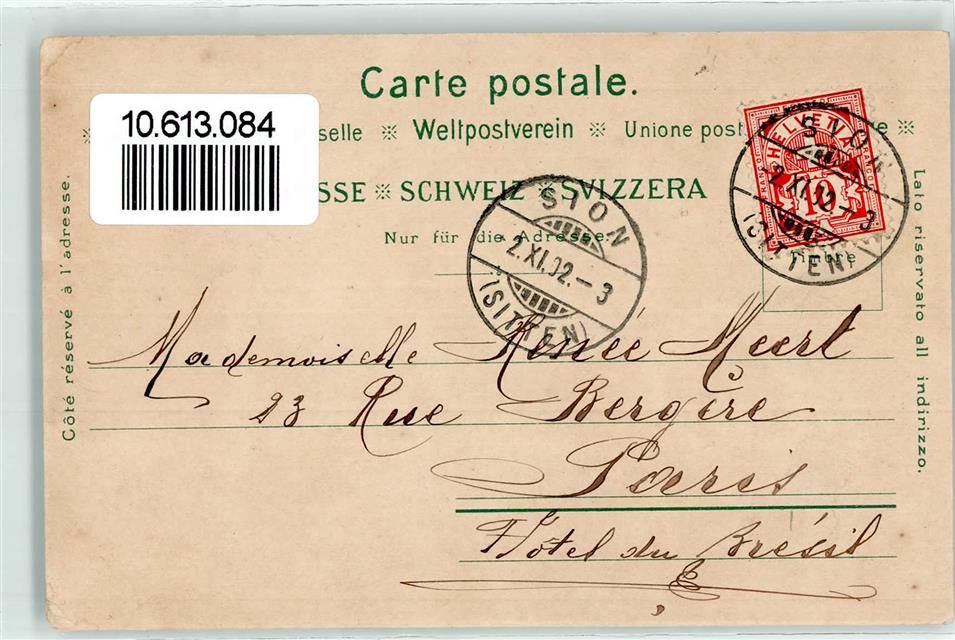 Carte postale.
10.613.084
selle ※ Weltpostverein ※ Unione post
SSE ※ SCHWEIZ ※ SVIZZERA
Nur für die Adresse.
HELVETIA
10
SION
2.XI.02.-3
(SITTEN)
SION
2.XI.02.-3
(SITTEN)
Timbre
Côté réservé à l'adresse.
Lato riservato all indirizzo.
Mademoiselle Renée Meert
23 Rue Bergère
Paris
Hôtel du Brésil